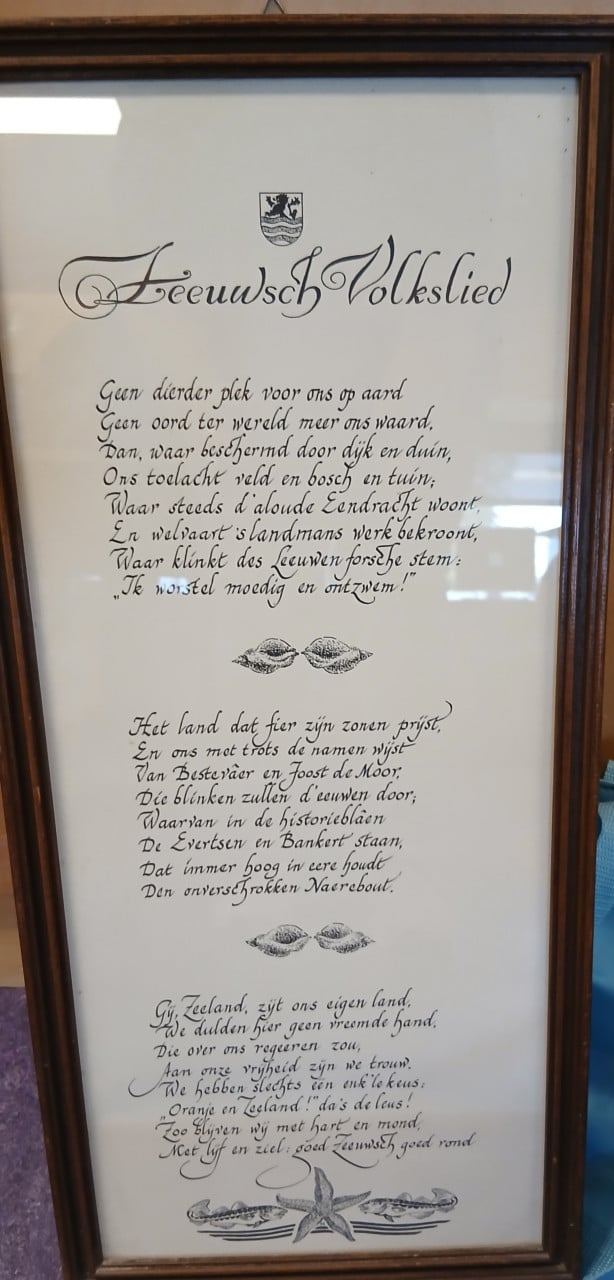 Zeeuwsch Volkslied
Geen dierder plek voor ons op aard
Geen oord ter wereld meer ons waard,
Dan, waar beschermd door dijk en duin,
Ons toelacht veld en bosch en tuin;
Waar steeds d'aloude Eendracht woont,
En welvaart 's landmans werk bekroont,
Waar klinkt des Leeuwen forsche stem:
„Ik worstel moedig en ontzwem!"
Het land dat fier zijn zonen prijst,
En ons met trots de namen wijst
Van Bestevâer en Joost de Moor,
Die blinken zullen d'eeuwen door;
Waarvan in de historieblâen
De Evertsen en Bankert staan,
Dat immer hoog in eere houdt
Den onverschrokken Naerebout.
Gij, Zeeland, zijt ons eigen land,
We dulden hier geen vreemde hand,
Die over ons regeeren zou,
Aan onze vrijheid zijn we trouw.
We hebben slechts één enk'le keus:
„Oranje en Zeeland!" da's de leus!
Zoo blijven wij met hart en mond,
Met lijf en ziel: goed Zeeuwsch goed rond